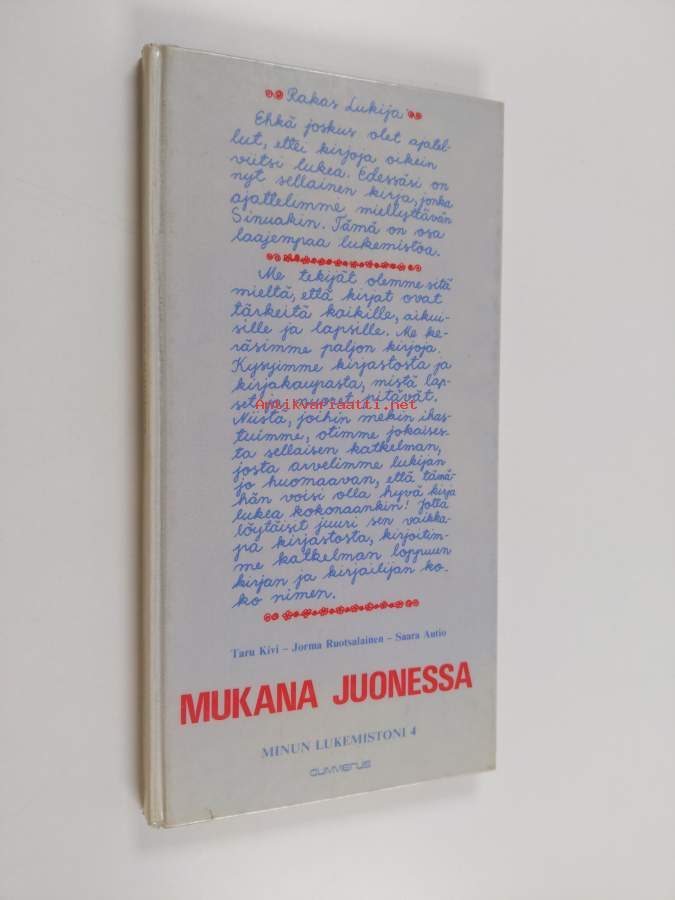 Rakas Lukija
Ehkä joskus olet ajatel-
lut, ettei kirjoja oikein
viitsi lukea. Edessäsi on
nyt sellainen kirja, jonka
ajattelimme miellyttävän
Sinuakin. Tämä on osa
laajempaa lukemistoa.
Me tekijät olemme sitä
mieltä, että kirjat ovat
tärkeitä kaikille, aikui-
sille ja lapsille. Me ke-
räsimme paljon kirjoja.
Kysyimme kirjastosta ja
kirjakaupasta, mistä lap-
set ja nuoret pitävät.
Antikvariaatti.net
Niistä, joihin mekin ihas-
tuimme, otimme jokaises-
ta sellaisen katkelman,
josta arvelimme lukijan
jo huomaavan, että tämä-
hän voisi olla hyvä kirja
lukea kokonaankin! Jotta
löytäisit juuri sen vaikka-
pa kirjastosta, kirjoitim-
me katkelman loppuun
kirjan ja kirjailijan ko-
ko nimen.
Taru Kivi – Jorma Ruotsalainen – Saara Autio
MUKANA JUONESSA
MINUN LUKEMISTONI 4
GUMMERUS